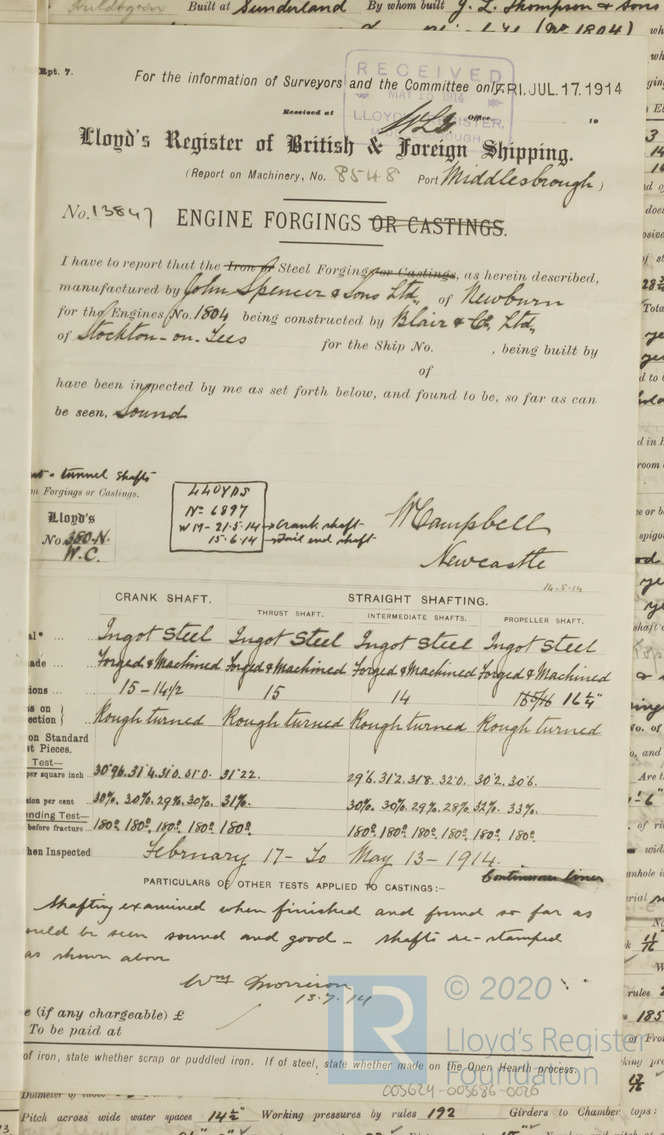 Built at Sunderland By whom built J. L. Thompson & Sons
(No 1804)
Rpt. 7.
For the information of Surveyors and the Committee only.
FRI. JUL. 17. 1914
RECEIVED
MAY 15 1914
LLOYD'S REGISTER,
MIDDLESBROUGH
Received at Office, 19
Lloyd's Register of British & Foreign Shipping.
(Report on Machinery, No. 8548 Port Middlesbrough)
No. 13847 ENGINE FORGINGS OR CASTINGS.
I have to report that the Iron or Steel Forgings or Castings, as herein described,
manufactured by John Spencer & Sons Ltd, of Newburn
for the Engines No. 1804 being constructed by Blair & Co. Ltd,
of Stockton-on-Tees for the Ship No. , being built by
of
have been inspected by me as set forth below, and found to be, so far as can
be seen, Sound
tunnel shafts
Forgings or Castings.
Lloyd's
No. 380.N.
W.C.
LLOYDS
No 6897
WM - 21.5.14 → Crank shaft
15.6.14 → Tail end shaft
W Campbell
Newcastle
14-5-14
CRANK SHAFT. STRAIGHT SHAFTING.
THRUST SHAFT. INTERMEDIATE SHAFTS. PROPELLER SHAFT.
al* ... Ingot Steel Ingot Steel Ingot Steel Ingot Steel
ade ... Forged & Machined Forged & Machined Forged & Machined Forged & Machined
ions ... 15 - 14 1/2 15 14 15 5/16 16 1/4"
s on
ection } Rough turned Rough turned Rough turned Rough turned
on Standard
t Pieces.
Test—
per square inch 30.96. 31.4. 31.0. 31.0. 31.22. 29.6. 31.2. 31.8. 32.0. 30.2. 30.6.
sion per cent 30%. 30%. 29%. 30%. 31%. 30%. 30%. 29%. 28%. 32%. 33%.
nding Test—
before fracture... 180º. 180º. 180º. 180º. 180º. 180º. 180º. 180º. 180º. 180º. 180º.
hen Inspected February 17 - to May 13 - 1914.
Continuous liner
PARTICULARS OF OTHER TESTS APPLIED TO CASTINGS:—
Shafting examined when finished and found so far as
ould be seen sound and good - shafts re-stamped
as shown above
Wm Morrison
13.7.14
e (if any chargeable) £
To be paid at
of iron, state whether scrap or puddled iron. If of steel, state whether made on the Open Hearth process.
LR
© 2020
Lloyd's Register
Foundation
003624-003686-0026
Pitch across wide water spaces 14 1/2" Working pressures by rules 192 Girders to Chamber tops: